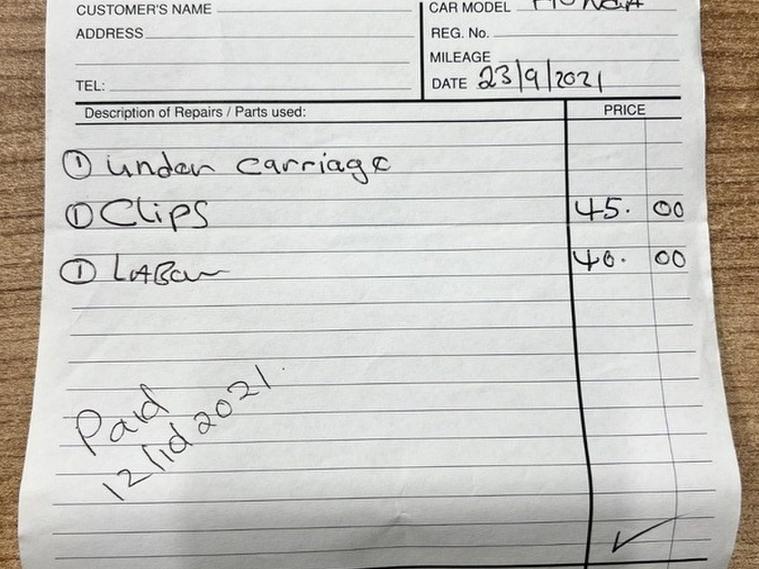 CUSTOMER'S NAME
CAR MODEL HONDA
ADDRESS
REG. No.
MILEAGE
TEL:
DATE 23/9/2021
Description of Repairs / Parts used:
PRICE
① under carriage
① Clips 45. 00
① LABour 40. 00
Paid
12/10 2021